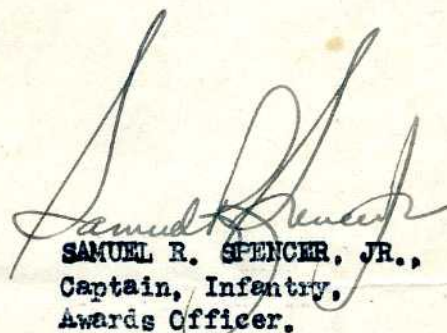 Samuel R Spencer Jr
SAMUEL R. SPENCER, JR.,
Captain, Infantry,
Awards Officer.